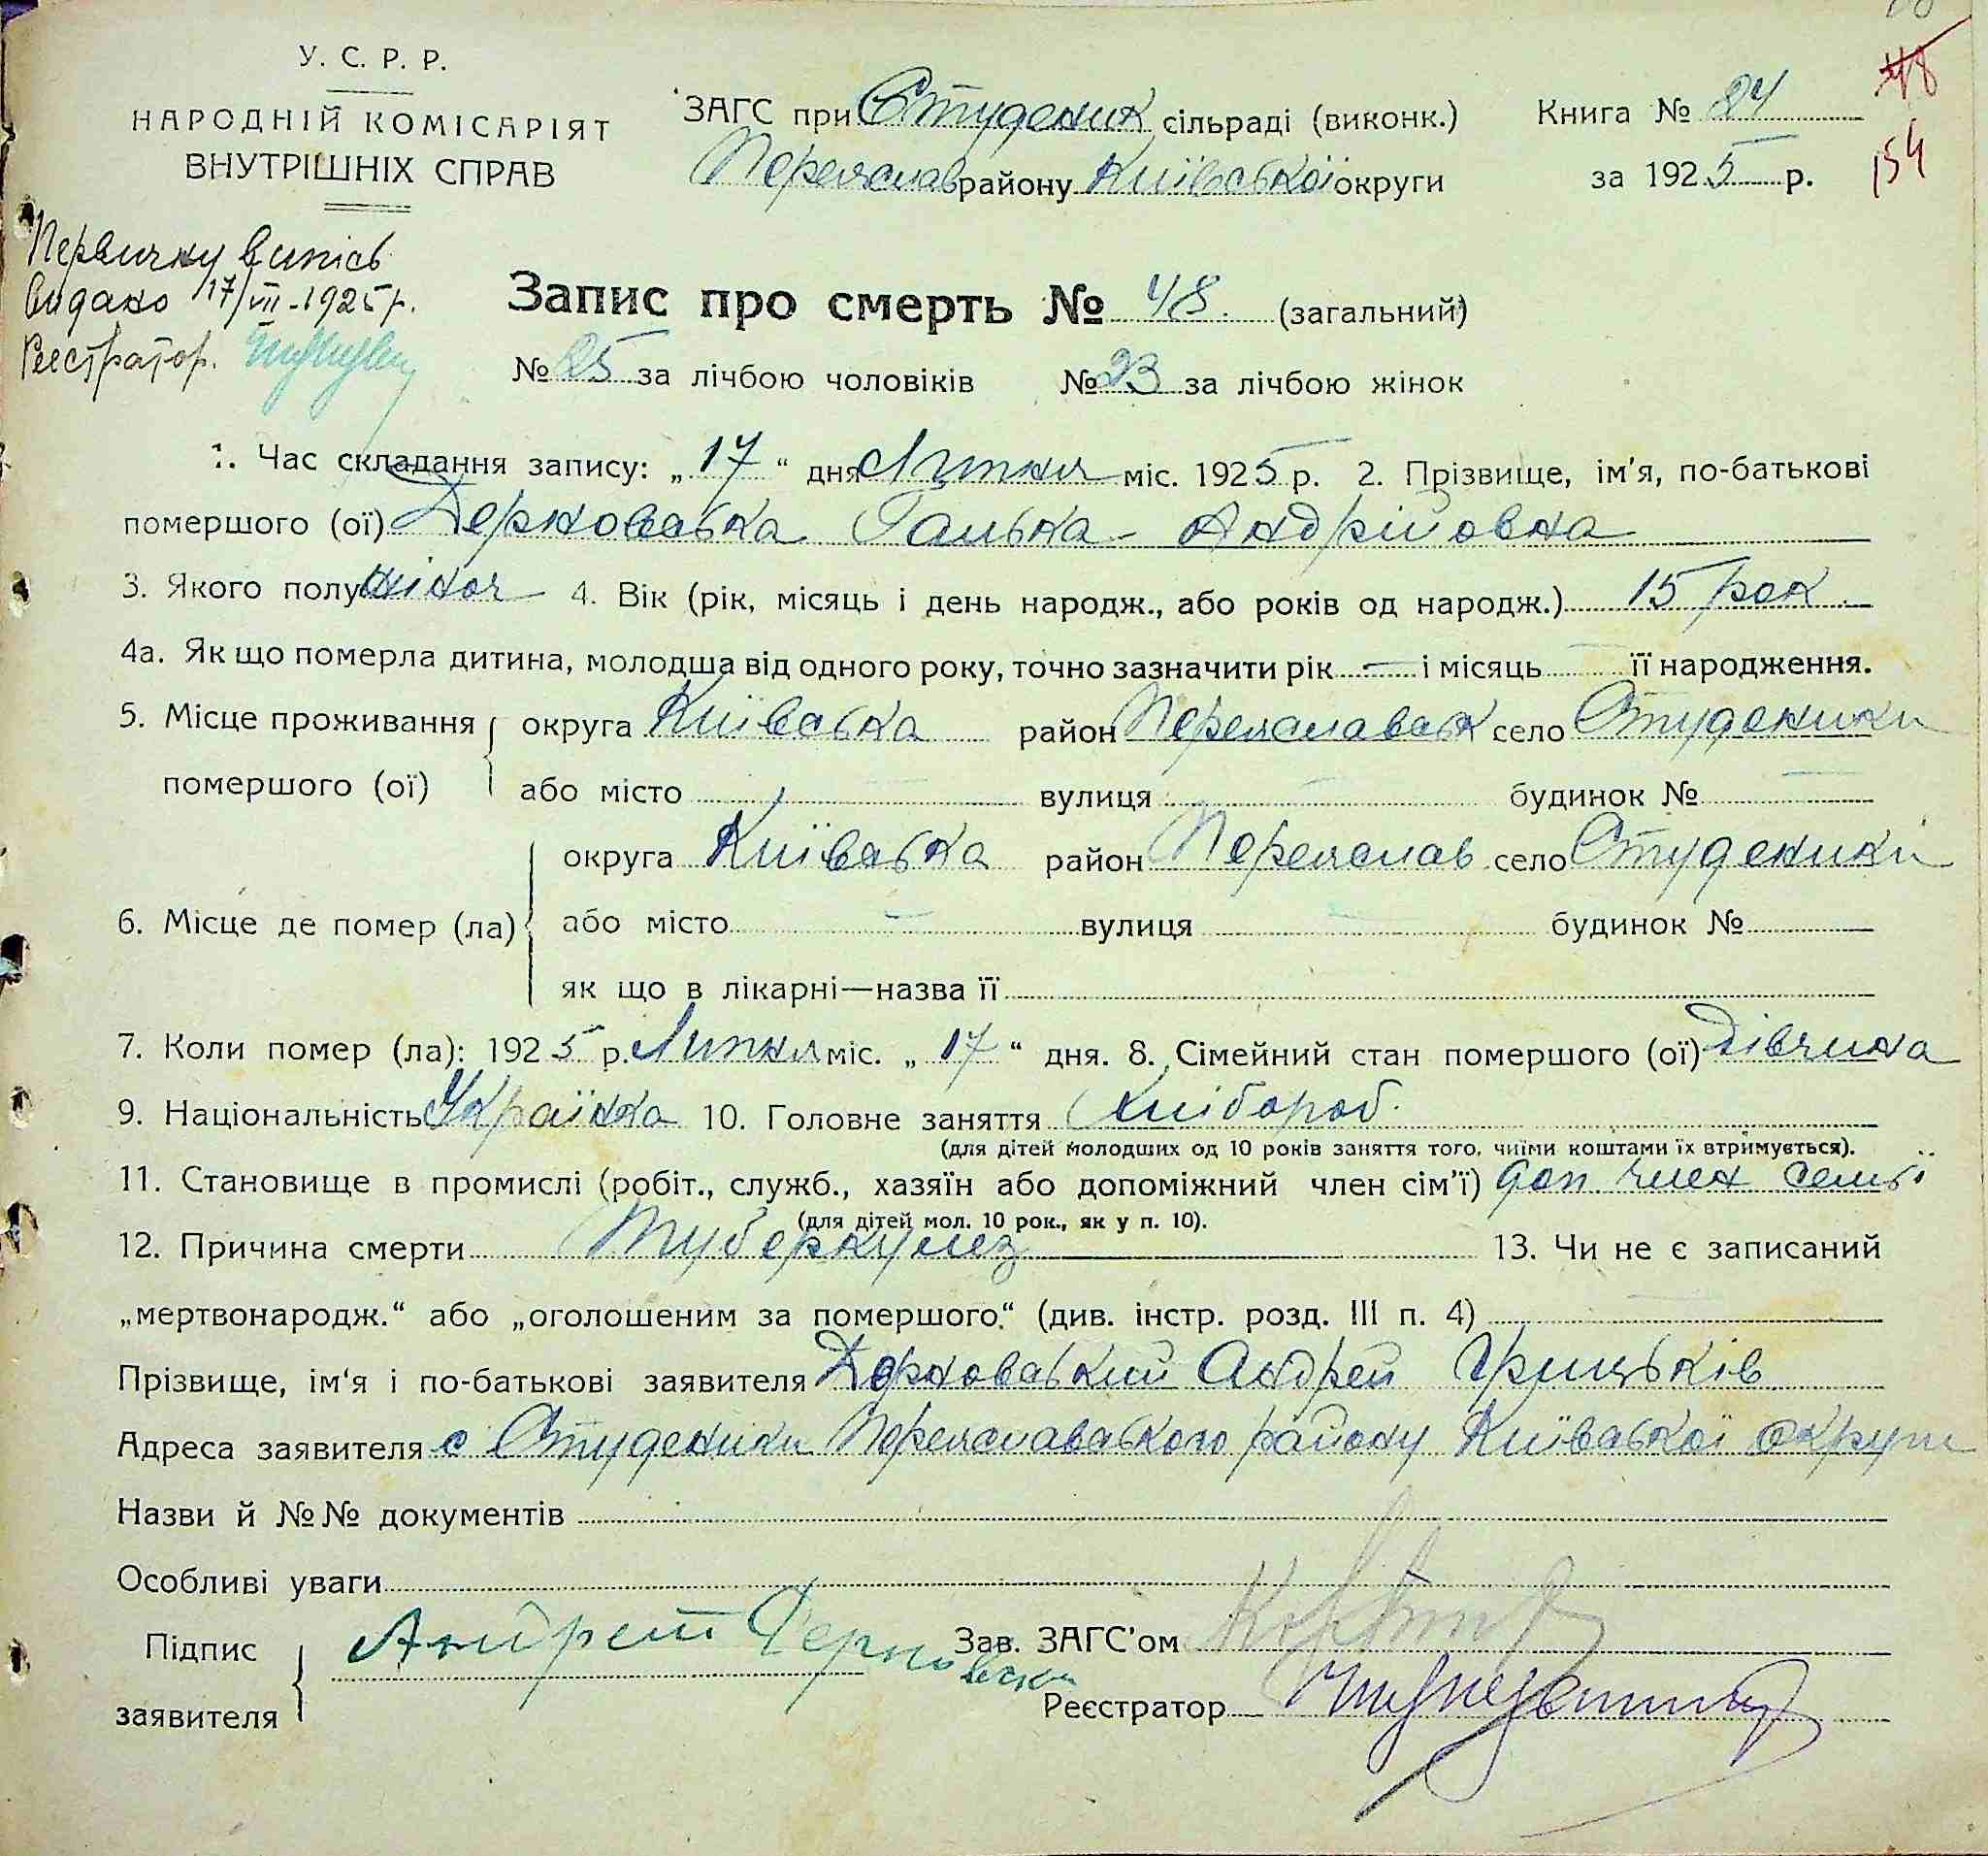 У. С. Р. Р.
НАРОДНІЙ КОМІСАРІЯТ
ВНУТРІШНІХ СПРАВ
ЗАГС при Студеник сільраді (виконк.)
Переяслав району Київської округи
Книга № 84
за 1925 р.
48
154
Первичну випісь
видано 17/VII-1925 р.
Реєстратор.
Запис про смерть № 48. (загальний)
№ 25 за лічбою чоловіків № 23 за лічбою жінок
1. Час складання запису: „17“ дня Липня міс. 1925 р. 2. Прізвище, ім'я, по-батькові
помершого (ої) Дерновська Галька Андрійовна
3. Якого полу жіноч 4. Вік (рік, місяць і день народж., або років од народж.) 15 рок.
4а. Як що померла дитина, молодша від одного року, точно зазначити рік — і місяць її народження.
5. Місце проживання помершого (ої) округа Київська район Переяславськ село Студеники
або місто — вулиця — будинок № —
6. Місце де помер (ла) округа Київська район Переяслав село Студеники
або місто — вулиця — будинок №
як що в лікарні—назва її
7. Коли помер (ла): 1925 р. Липня міс. „17“ дня. 8. Сімейний стан помершого (ої) Дівчина
9. Національність Українка 10. Головне заняття Хлібороб.
(для дітей молодших од 10 років заняття того, чиїми коштами їх втримується).
11. Становище в промислі (робіт., служб., хазяїн або допоміжний член сім'ї) доп член семьї
(для дітей мол. 10 рок., як у п. 10).
12. Причина смерти Туберкульз 13. Чи не є записаний
„мертвонародж.“ або „оголошеним за помершого.“ (див. інстр. розд. III п. 4)
Прізвище, ім'я і по-батькові заявителя Дерновський Андрей Грицьків
Адреса заявителя с Студеники Переяславського району Київської округи
Назви й №№ документів
Особливі уваги
Підпис заявителя Андрей Дерновски
Зав. ЗАГС'ом
Реєстратор